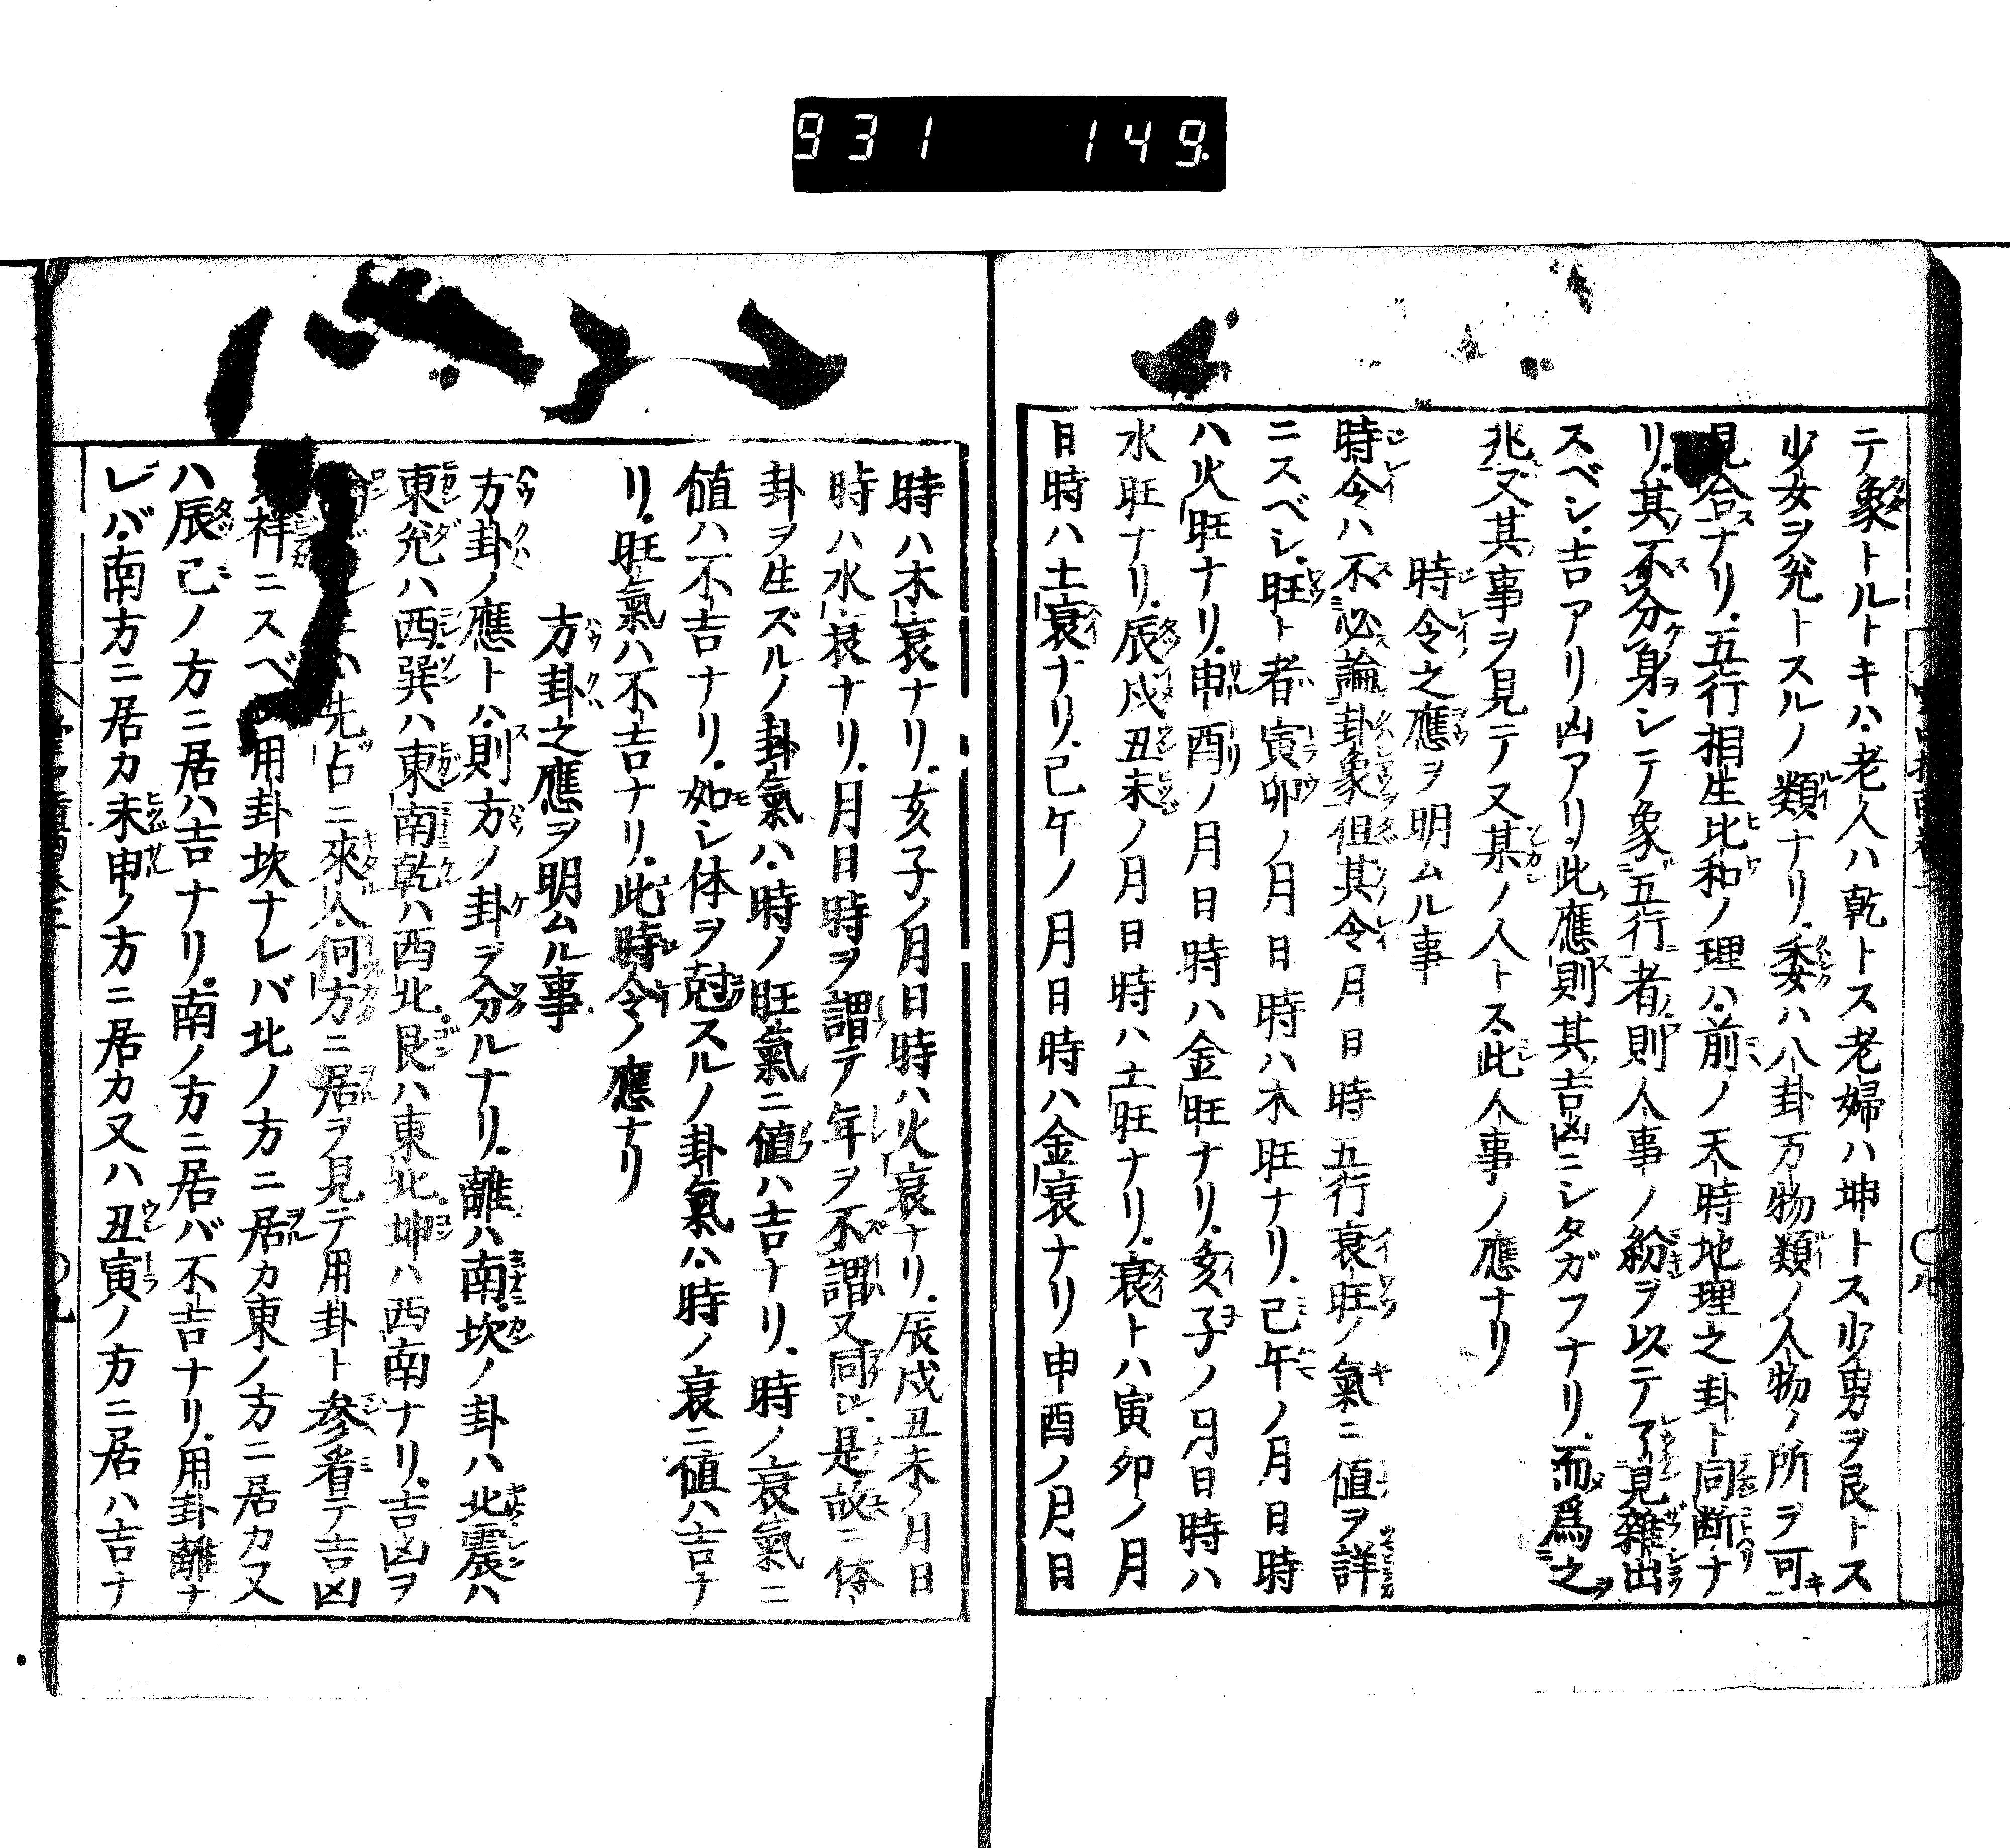 931 149.
テ象トルトキハ老人ハ乾トス老婦ハ坤トス少男ヲ艮トス
少女ヲ兌トスルノ類ナリ委ハ八卦万物類ノ人物ノ所ヲ可
見合ナリ五行相生比和ノ理ハ前ノ天時地理之卦ト同断ナ
リ其不分身シテ象五行者則人事ノ紛ヲ以テ了見雑出
スベシ吉アリ凶アリ此應則其吉凶ニシタガフナリ而爲之
兆又其事ヲ見テ又某ノ人トス此人事ノ應ナリ
時令之應ヲ明ムル事
時令ハ不必論卦象但其令月日時五行衰旺ノ氣ニ値ヲ詳
ニスベシ旺ト者寅卯ノ月日時ハ木旺ナリ巳午ノ月日時
ハ火旺ナリ申酉ノ月日時ハ金旺ナリ亥子ノ月日時ハ
水旺ナリ辰戌丑未ノ月日時ハ土旺ナリ衰トハ寅卯ノ月
日時ハ土衰ナリ巳午ノ月日時ハ金衰ナリ申酉ノ月日
時ハ木衰ナリ亥子ノ月日時ハ火衰ナリ辰戌丑未ノ月日
時ハ水衰ナリ月日時ヲ謂テ年ヲ不謂又同シ是故ニ体
卦ヲ生ズルノ卦氣ハ時ノ旺氣ニ値ハ吉ナリ時ノ衰氣ニ
値ハ不吉ナリ如シ体ヲ尅スルノ卦氣ハ時ノ衰ニ値ハ吉ナ
リ旺氣ハ不吉ナリ此時令ノ應ナリ
方卦之應ヲ明ムル事
方卦ノ應トハ則方ノ卦ヲ分ルナリ離ハ南坎ノ卦ハ北震ハ
東兌ハ西巽ハ東南乾ハ西北艮ハ東北坤ハ西南ナリ吉凶ヲ
ハ先占ニ來人何方ニ居ヲ見テ用卦ト参看テ吉凶
祥ニスベ 用卦坎ナレバ北ノ方ニ居カ東ノ方ニ居カ又
ハ辰巳ノ方ニ居ハ吉ナリ南ノ方ニ居バ不吉ナリ用卦離ナ
レバ南方ニ居カ未申ノ方ニ居カ又ハ丑寅ノ方ニ居ハ吉ナ